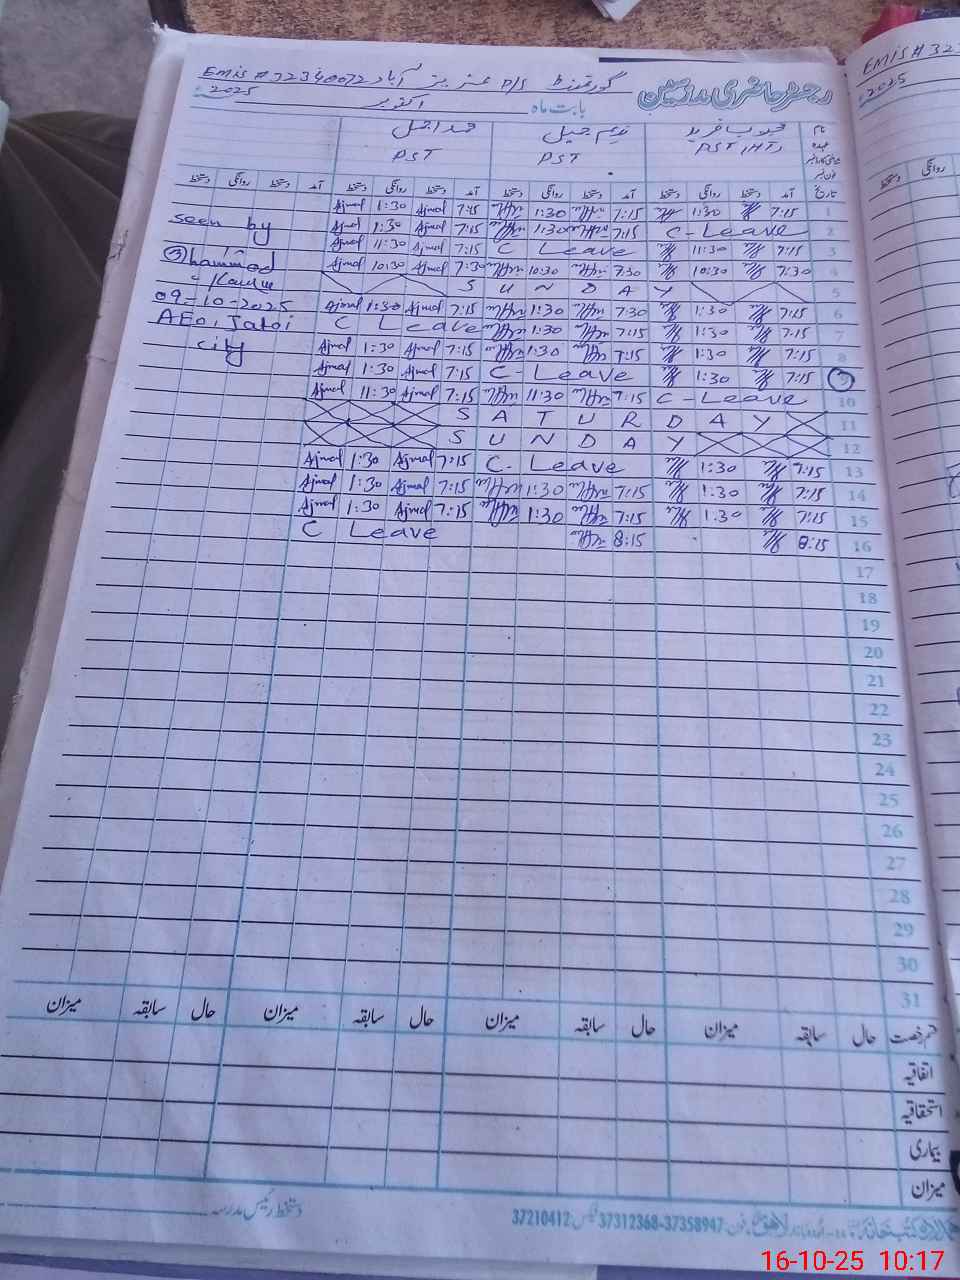 رجسٹر حاضری مدرسین گورنمنٹ P/S عزیز آباد EMIS # 32340072
بابت ماہ اکتوبر 2025
نام محبوب فرید ندیم جمیل محمد اجمل
عہدہ PST (HT) PST PST
تاریخ آمد دستخط روانگی دستخط آمد دستخط روانگی دستخط آمد دستخط روانگی دستخط آمد دستخط روانگی دستخط
1 7:15 1:30 7:15 1:30 7:45 Ajmal 1:30 Ajmal
2 C-Leave 7:15 1:30 7:15 Ajmal 1:30 Ajmal
3 7:15 11:30 C Leave 7:15 Ajmal 11:30 Ajmal
4 7:30 10:30 7:30 10:30 7:30 Ajmal 10:30 Ajmal
5 SUNDAY
6 7:15 1:30 7:30 1:30 7:15 Ajmal 1:30 Ajmal
7 7:15 1:30 7:15 1:30 C Leave
8 7:15 1:30 7:15 1:30 7:15 Ajmal 1:30 Ajmal
9 7:15 1:30 C-Leave 7:15 Ajmal 1:30 Ajmal
10 C-Leave 7:15 11:30 7:15 Ajmal 11:30 Ajmal
11 SATURDAY
12 SUNDAY
13 7:15 1:30 C-Leave 7:15 Ajmal 1:30 Ajmal
14 7:15 1:30 7:15 1:30 7:15 Ajmal 1:30 Ajmal
15 7:15 1:30 7:15 1:30 7:15 Ajmal 1:30 Ajmal
16 8:15 8:15 C Leave
17
18
19
20
21
22
23
24
25
26
27
28
29
30
31
seen by
09-10-2025
AEO, Jatoi
city
قسم رخصت حال سابقہ میزان حال سابقہ میزان حال سابقہ میزان حال سابقہ میزان
اتفاقیہ
استحقاقیہ
بیماری
میزان
دستخط رئیس مدرسہ
37210412 فیکس: 37312368-37358947 فون:
EMIS # 323
2025
روانگی دستخط
16-10-25 10:17